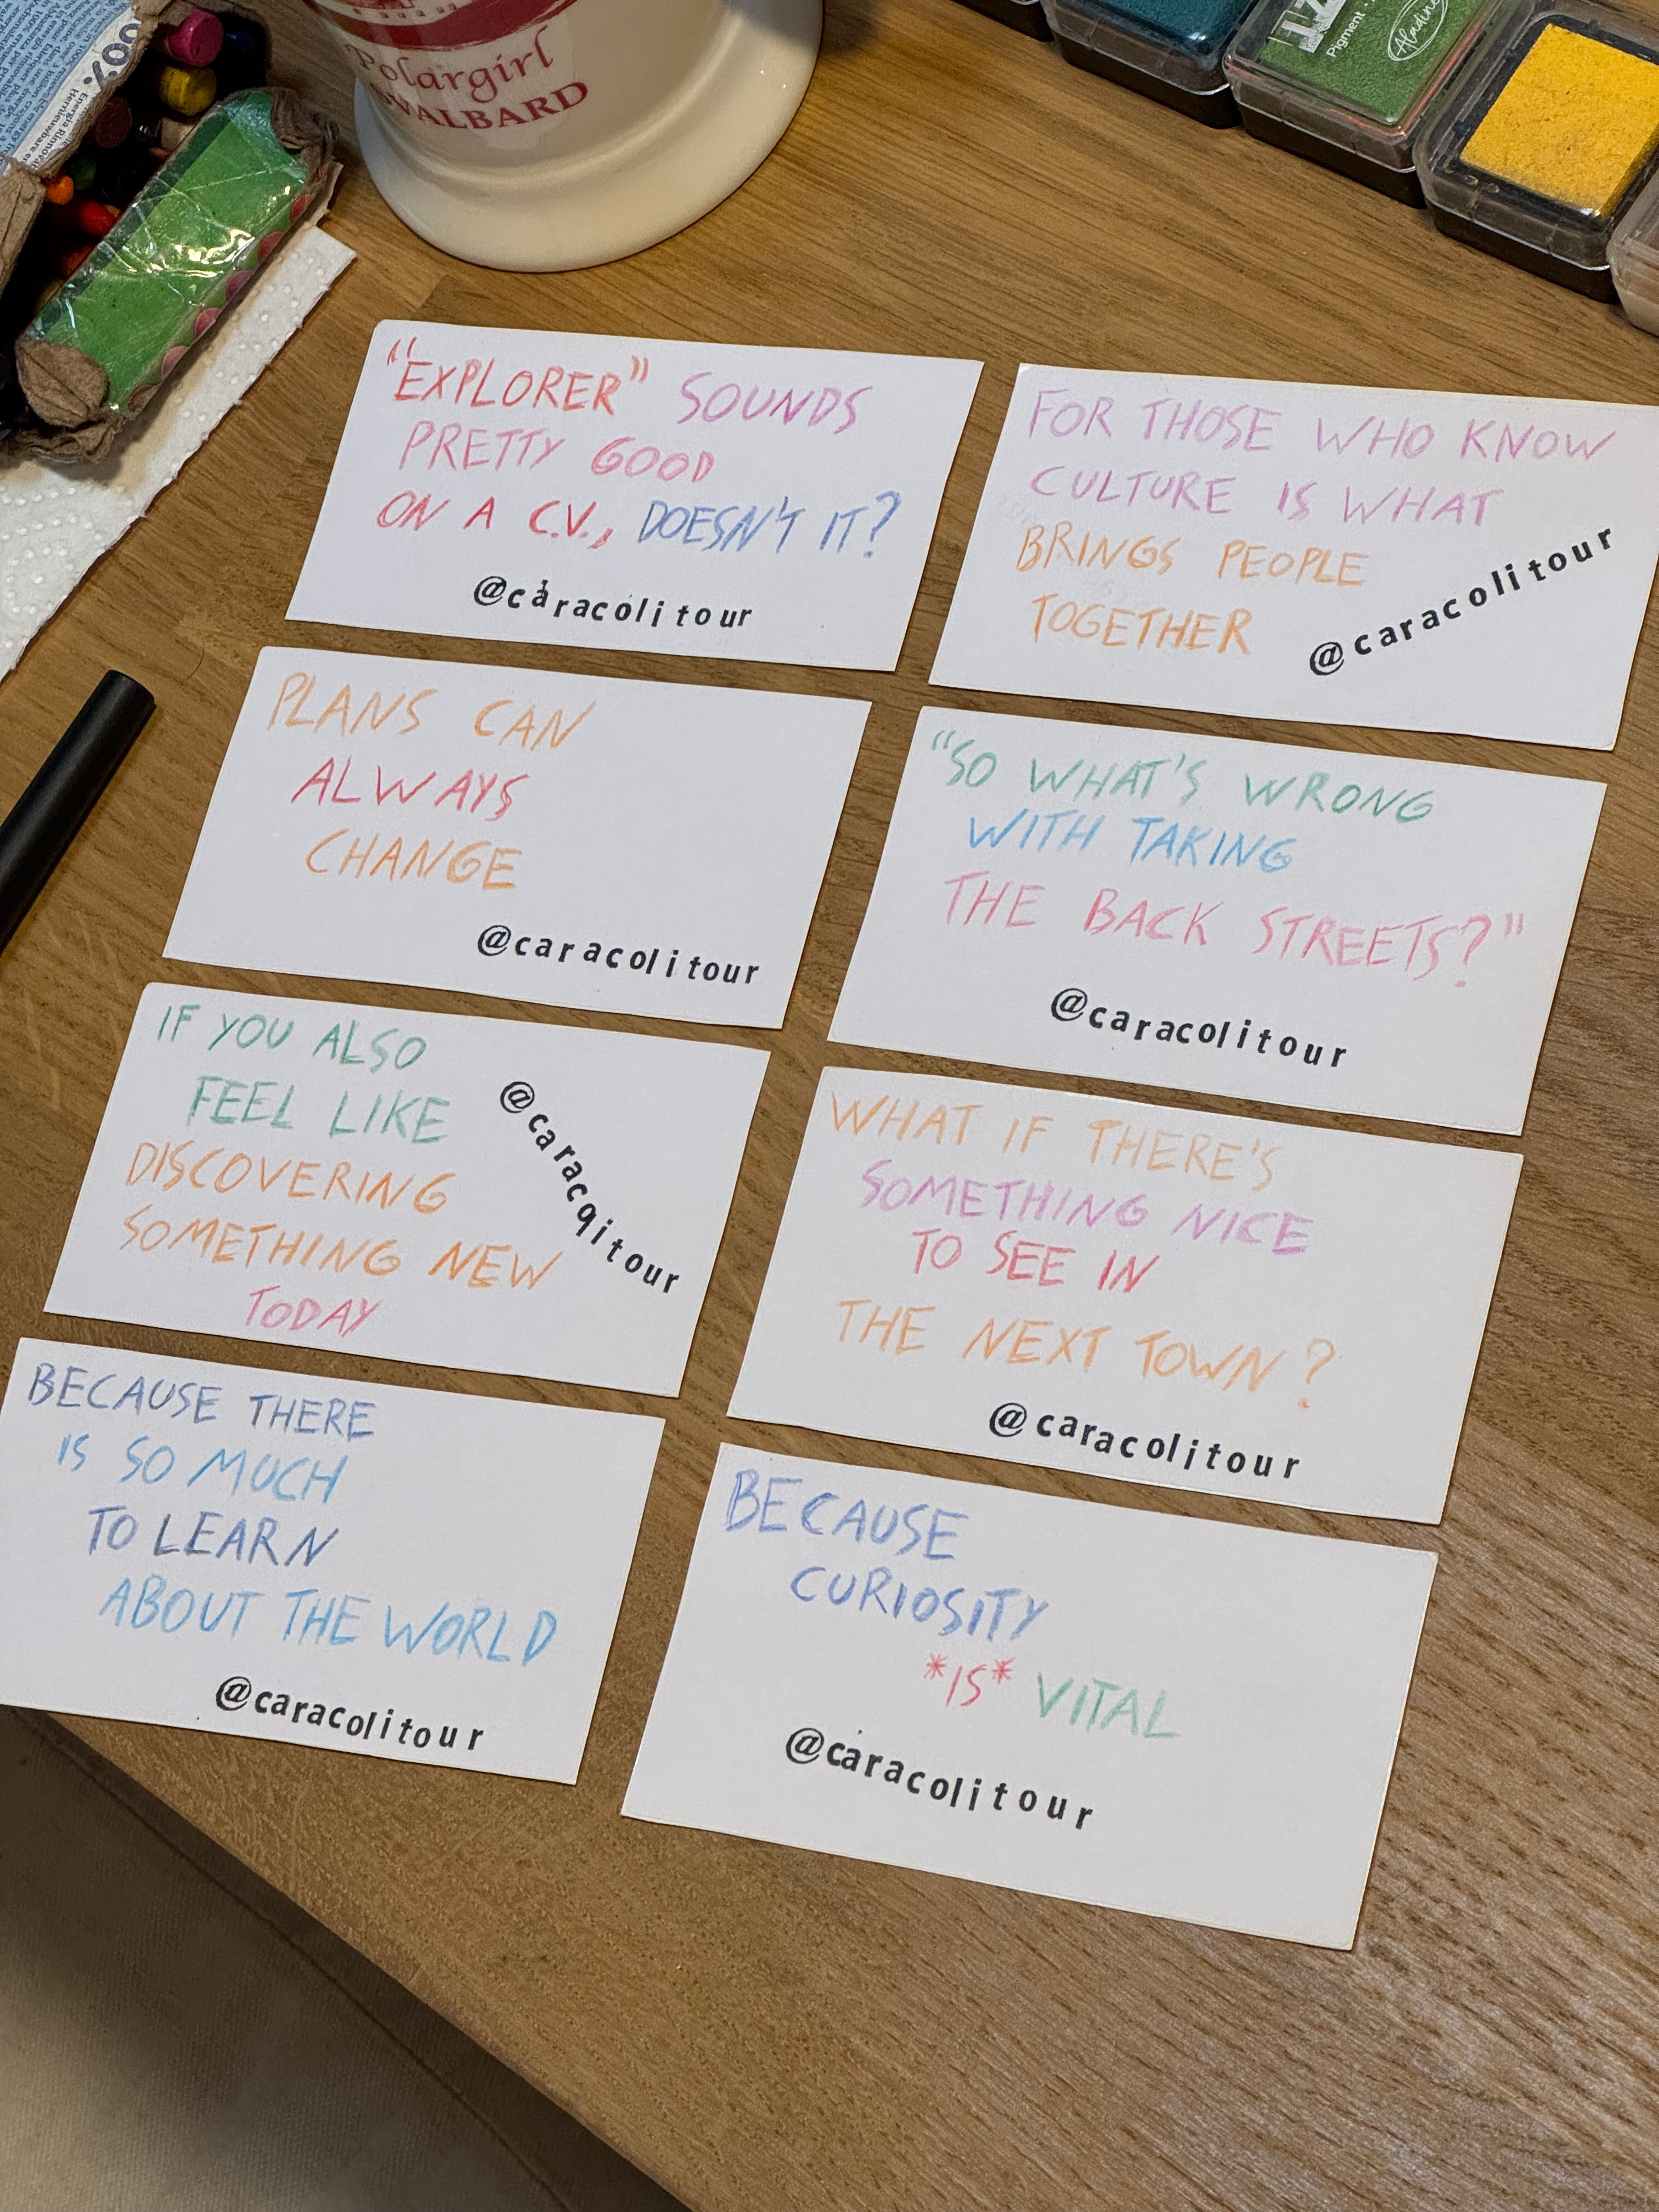 Polargirl
VALBARD
Pigment
"EXPLORER" SOUNDS
PRETTY GOOD
ON A C.V., DOESN'T IT?
@caracolitour
FOR THOSE WHO KNOW
CULTURE IS WHAT
BRINGS PEOPLE
TOGETHER
@caracolitour
PLANS CAN
ALWAYS
CHANGE
@caracolitour
"SO WHAT'S WRONG
WITH TAKING
THE BACK STREETS?"
@caracolitour
IF YOU ALSO
FEEL LIKE
DISCOVERING
SOMETHING NEW
TODAY
@caracolitour
WHAT IF THERE'S
SOMETHING NICE
TO SEE IN
THE NEXT TOWN?
@caracolitour
BECAUSE THERE
IS SO MUCH
TO LEARN
ABOUT THE WORLD
@caracolitour
BECAUSE
CURIOSITY
*IS* VITAL
@caracolitour